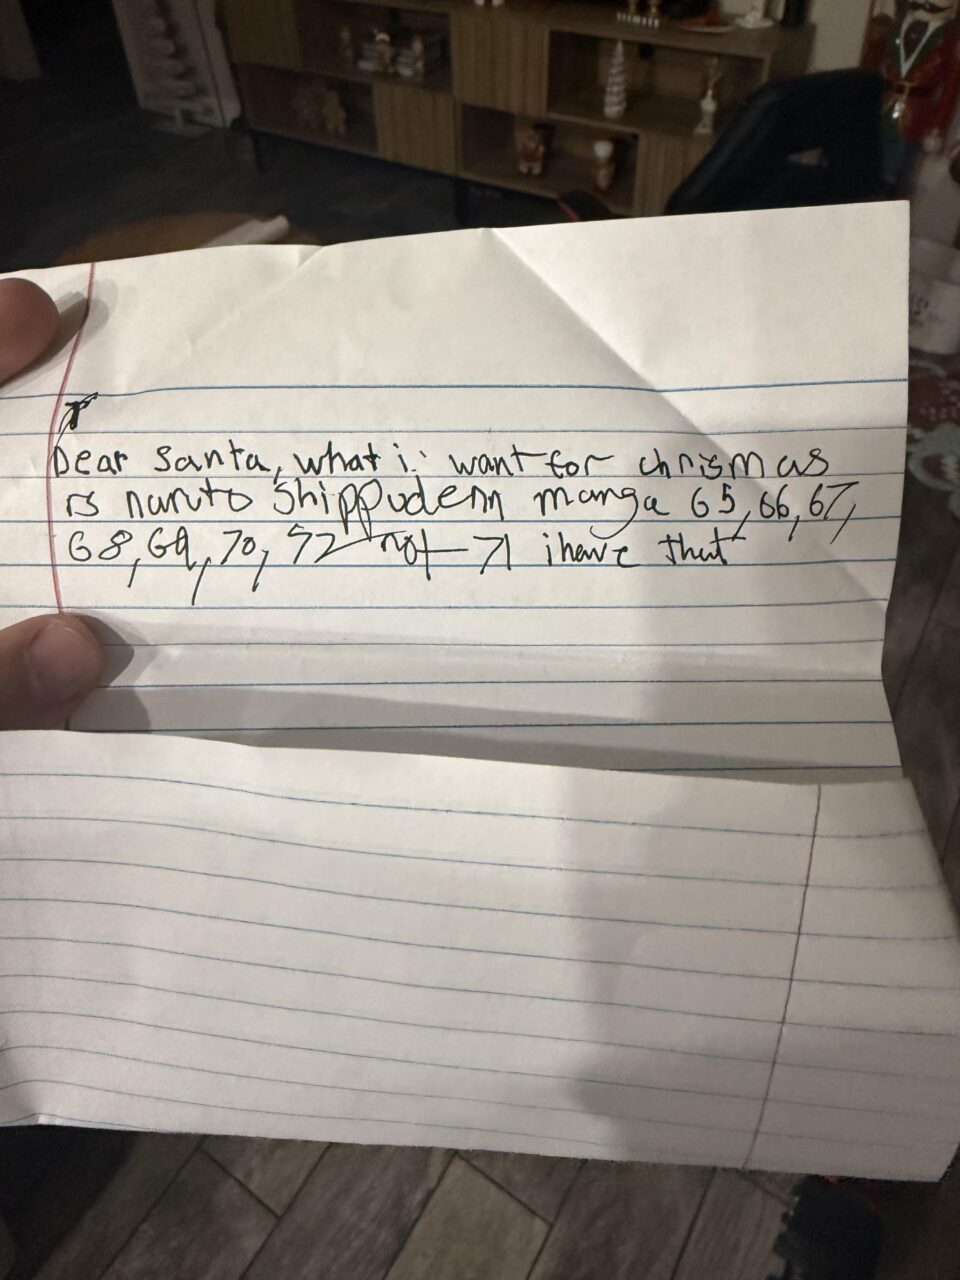 Dear Santa, what i want for chrismas
is naruto Shippudenn manga 65, 66, 67,
68, 69, 70, 72 not 71 i have that